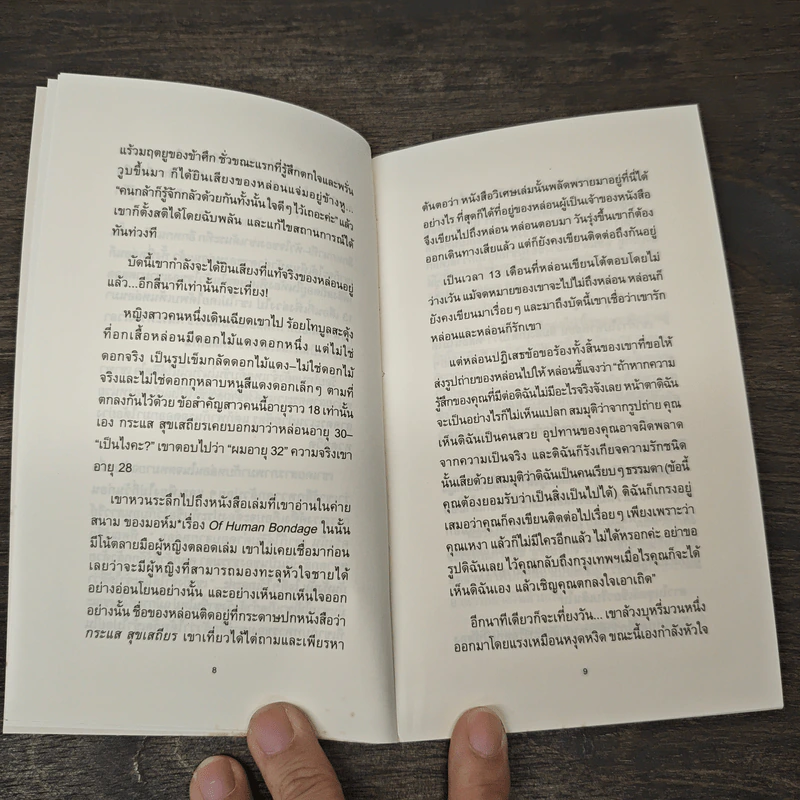 แร้วมฤตยูของข้าศึก ชั่วขณะแรกที่รู้สึกตกใจและพรั่น
วูบขึ้นมา ก็ได้ยินเสียงของหล่อนแจ่มอยู่ข้างหู...
“คนกล้าก็รู้จักกลัวด้วยกันทั้งนั้นใจดีๆ ไว้เถอะค่ะ” แล้ว
เขาก็ตั้งสติได้โดยฉับพลัน และแก้ไขสถานการณ์ได้
ทันท่วงที
บัดนี้เขากำลังจะได้ยินเสียงที่แท้จริงของหล่อนอยู่
แล้ว...อีกสี่นาทีเท่านั้นก็จะเที่ยง!
หญิงสาวคนหนึ่งเดินเฉียดเขาไป ร้อยโทบูลสะดุ้ง
ที่อกเสื้อหล่อนมีดอกไม้แดงดอกหนึ่ง แต่ไม่ใช่
ดอกจริง เป็นรูปเข็มกลัดดอกไม้แดง–ไม่ใช่ดอกไม้
จริงและไม่ใช่ดอกกุหลาบหนูสีแดงดอกเล็กๆ ตามที่
ตกลงกันไว้ด้วย ข้อสำคัญสาวคนนี้อายุราว 18 เท่านั้น
เอง กระแส สุขเสถียรเคยบอกมาว่าหล่อนอายุ 30–
“เป็นไงคะ?” เขาตอบไปว่า “ผมอายุ 32” ความจริงเขา
อายุ 28
เขาหวนระลึกไปถึงหนังสือเล่มที่เขาอ่านในค่าย
สนาม ของมอห์ม*เรื่อง Of Human Bondage ในนั้น
มีโน้ตลายมือผู้หญิงตลอดเล่ม เขาไม่เคยเชื่อมาก่อน
เลยว่าจะมีผู้หญิงที่สามารถมองทะลุหัวใจชายได้
อย่างอ่อนโยนอย่างนั้น และอย่างเห็นอกเห็นใจออก
อย่างนั้น ชื่อของหล่อนติดอยู่ที่กระดาษปกหนังสือว่า
กระแส สุขเสถียร เขาเที่ยวได้ไต่ถามและเพียรหา
8
ต้นตอว่า หนังสือวิเศษเล่มนั้นพลัดพรายมาอยู่ที่นี่ได้
อย่างไร ที่สุดก็ได้ที่อยู่ของหล่อนผู้เป็นเจ้าของหนังสือ
จึงเขียนไปถึงหล่อน หล่อนตอบมา วันรุ่งขึ้นเขาก็ต้อง
ออกเดินทางเสียแล้ว แต่ก็ยังคงเขียนติดต่อถึงกันอยู่
เป็นเวลา 13 เดือนที่หล่อนเขียนโต้ตอบโดยไม่
ว่างเว้น แม้จดหมายของเขาจะไปไม่ถึงหล่อน หล่อนก็
ยังคงเขียนมาเรื่อยๆ และมาถึงบัดนี้เขาเชื่อว่าเขารัก
หล่อนและหล่อนก็รักเขา
แต่หล่อนปฏิเสธข้อขอร้องทั้งสิ้นของเขาที่ขอให้
ส่งรูปถ่ายของหล่อนไปให้ หล่อนชี้แจงว่า “ถ้าหากความ
รู้สึกของคุณที่มีต่อดิฉันไม่มีอะไรจริงจังเลย หน้าตาดิฉัน
จะเป็นอย่างไรก็ไม่เห็นแปลก สมมุติว่าจากรูปถ่าย คุณ
เห็นดิฉันเป็นคนสวย อุปทานของคุณอาจผิดพลาด
จากความเป็นจริง และดิฉันก็รังเกียจความรักชนิด
นั้นเสียด้วย สมมุติว่าดิฉันเป็นคนเรียบๆ ธรรมดา (ข้อนี้
คุณต้องยอมรับว่าเป็นสิ่งเป็นไปได้) ดิฉันก็เกรงอยู่
เสมอว่าคุณก็คงเขียนติดต่อไปเรื่อยๆ เพียงเพราะว่า
คุณเหงา แล้วก็ไม่มีใครอีกแล้ว ไม่ได้หรอกค่ะ อย่าขอ
รูปดิฉันเลย ไว้คุณกลับถึงกรุงเทพฯเมื่อไรคุณก็จะได้
เห็นดิฉันเอง แล้วเชิญคุณตกลงใจเอาเถิด”
อีกนาทีเดียวก็จะเที่ยงวัน... เขาล้วงบุหรี่มวนหนึ่ง
ออกมาโดยแรงเหมือนหงุดหงิด ขณะนี้เองกำลังหัวใจ
9